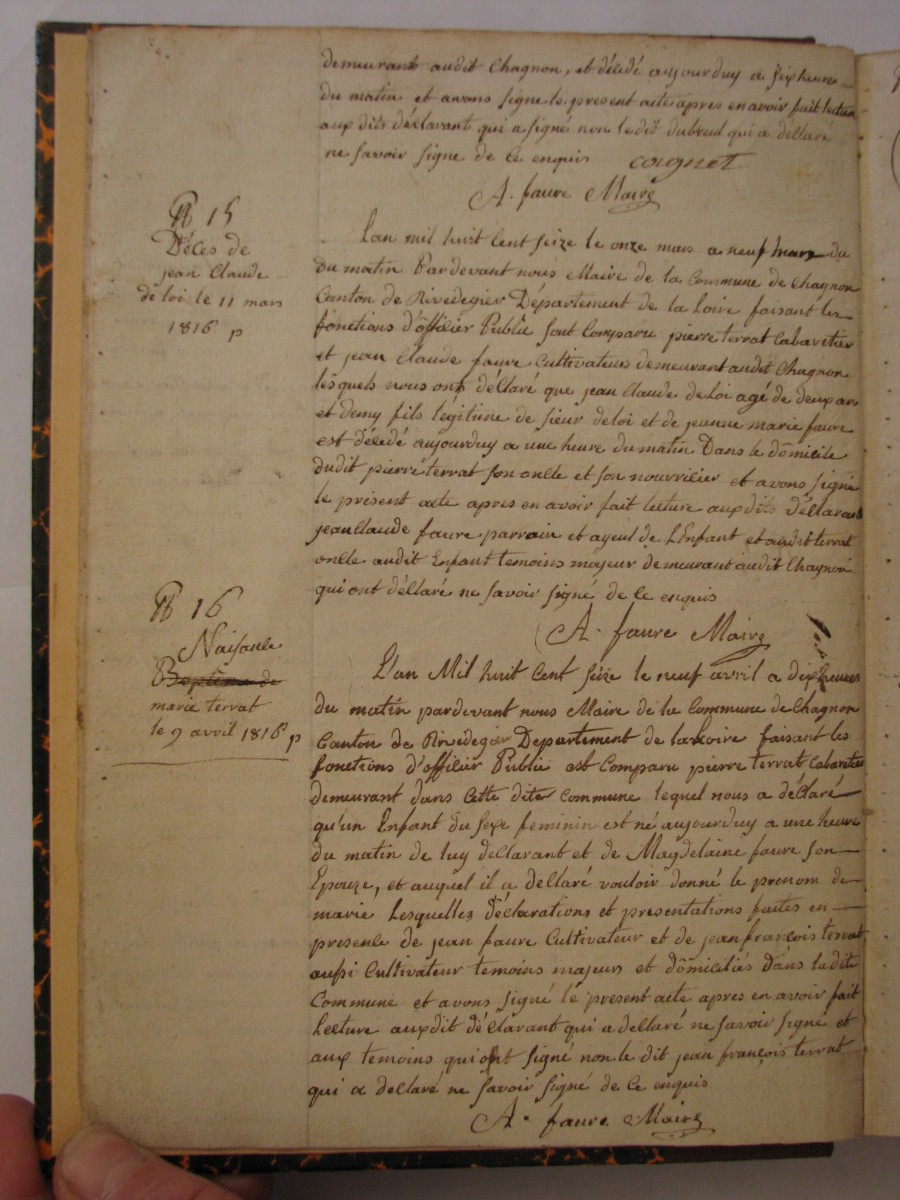 demeurant audit Chagnon, et décédé aujourduy a six heure
du matin et avons signe le present acte apres en avoir fait lecture
aux dits déclarant qui a signé non le dit dubreul qui a déclare
ne savoir signe de ce enquis coignet
A. faure Maire
N 15
Déces de
jean Claude
de loi le 11 mars
1816 p
L'an mil huit Cent seize le onze mars a neuf heure du
du matin Pardevant nous Maire de la Commune de Chagnon
Canton de Rivedegier Département de la Loire faisant les
fonctions d'officier Public sont Comparu pierre terrat Cabaretier
et jean Claude faure Cultivateurs demeurant audit Chagnon
lesquels nous ont déclaré que jean Claude de Loi agé de deux an
et demy fils légitime de sieur deloi et de jeanne marie faure
est décédé aujourduy a une heure du matin Dans le dômicile
dudit pierre terrat son oncle et son nourricier et avons signé
le présent acte apres en avoir fait lecture aux dits déclarant
jean Claude faure parrain et ayeul de L'Enfant et audit terrat
oncle audit Enfant temoins majeur demeurant audit Chagnon
qui ont déclaré ne savoir signé de ce enquis
A. faure Maire
N 16
Naisance
Baptême de
marie terrat
le 9 avril 1816 p
L'an Mil huit Cent seize le neuf avril a dix heures
du matin pardevant nous Maire de la Commune de Chagnon
Canton de Rivedegier Departement de la Loire faisant les
fonctions d'officier Public est Comparu pierre terrat Cabaretier
demeurant dans Cette dite Commune lequel nous a déclaré
qu'un Enfant du sexe feminin est né aujourduy a une heure
du matin de luy declarant et de Magdelaine faure son
Epouze, et auquel il a declaré vouloir donné le prenom de
marie Lesquelles déclarations et presentations faites en
presence de jean faure Cultivateur et de jean françois terrat
aussi Cultivateur temoins majeurs et dômiciliés Dans ladite
Commune et avons signé le present acte apres en avoir fait
Lecture auxdit déclarant qui a declaré ne savoir signé et
aux temoins qui ont signé non le dit jean françois terrat
qui a declaré ne savoir signé de ce enquis
A. faure Maire